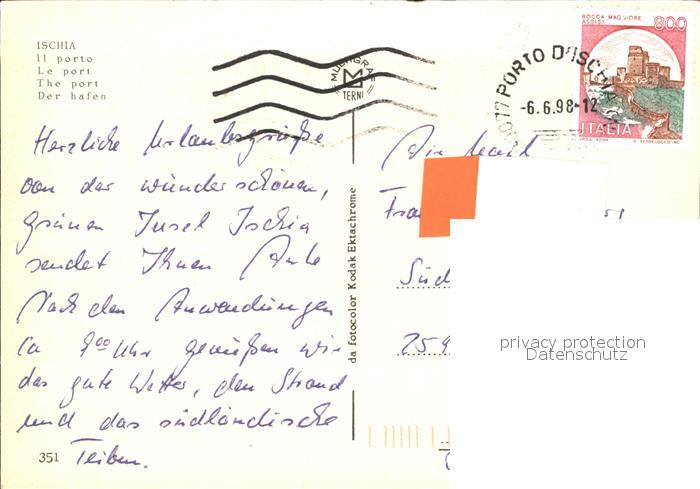 ISCHIA
Il porto
Le port
The port
Der hafen
MUCIGRAF
TERNI
80077 PORTO D'ISCHIA
-6.6.98-12
ROCCA MAGGIORE
ASSISI
800
ITALIA
Herzliche Urlaubsgrüße
von der wunderschönen,
grünen Insel Ischia
sendet Ihnen
Nach den Anwendungen
ca 9⁰⁰ Uhr genießen wir
das gute Wetter, den Strand
und das südländische
Treiben.
351
da fotocolor Kodak Ektachrome
Fra
Süd
259
privacy protection
Datenschutz